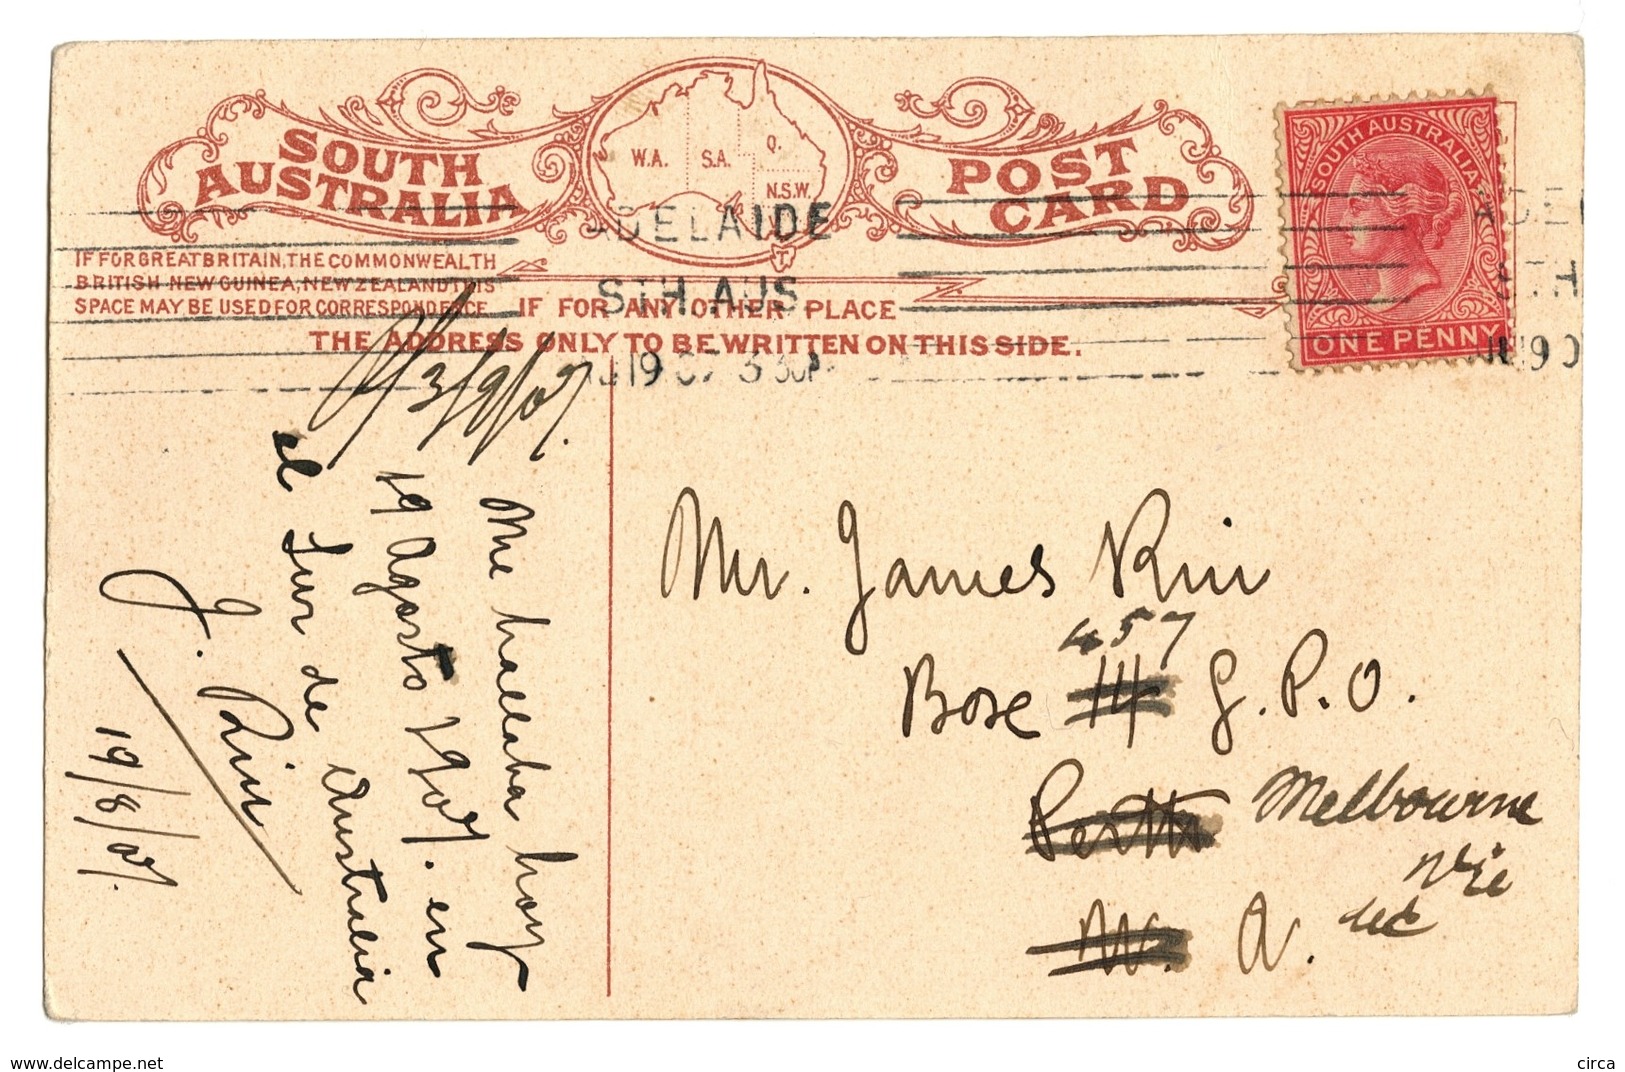 SOUTH AUSTRALIA
POST CARD
W.A. S.A. Q. N.S.W. T
IF FOR GREAT BRITAIN, THE COMMONWEALTH
BRITISH NEW GUINEA, NEW ZEALAND THIS
SPACE MAY BE USED FOR CORRESPONDENCE
IF FOR ANY OTHER PLACE
THE ADDRESS ONLY TO BE WRITTEN ON THIS SIDE.
ADELAIDE
STH. AUS
19 07 3 30P
SOUTH AUSTRALIA
ONE PENNY
3/9/07.
Me hallaba hoy
19 Agosto 1907. en
el Sur de Australia
J. Rin
19/8/07.
Mr. James Rin
457
Box 114 G.P.O.
Perth Melbourne
Vic
W. A.
delcampe.net
circa